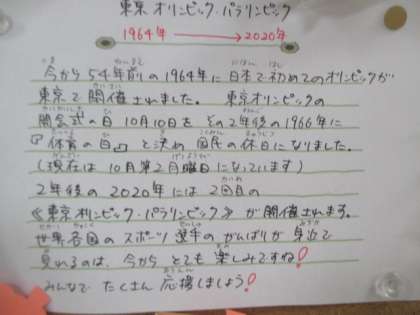 東京オリンピック パラリンピック
1964年 → 2020年
今から54年前の1964年に日本で初めてのオリンピックが
東京で開催されました。 東京オリンピックの
開会式の日10月10日を その2年後の1966年に
『体育の日』と決め 国民の休日になりました。
(現在は10月第2月曜日になっています)
2年後の2020年には 2回目の
《東京オリンピック・パラリンピック》が開催されます。
世界各国のスポーツ選手のがんばりが身近で
見れるのは、今から とても楽しみですね!
みんなで たくさん 応援しましょう!